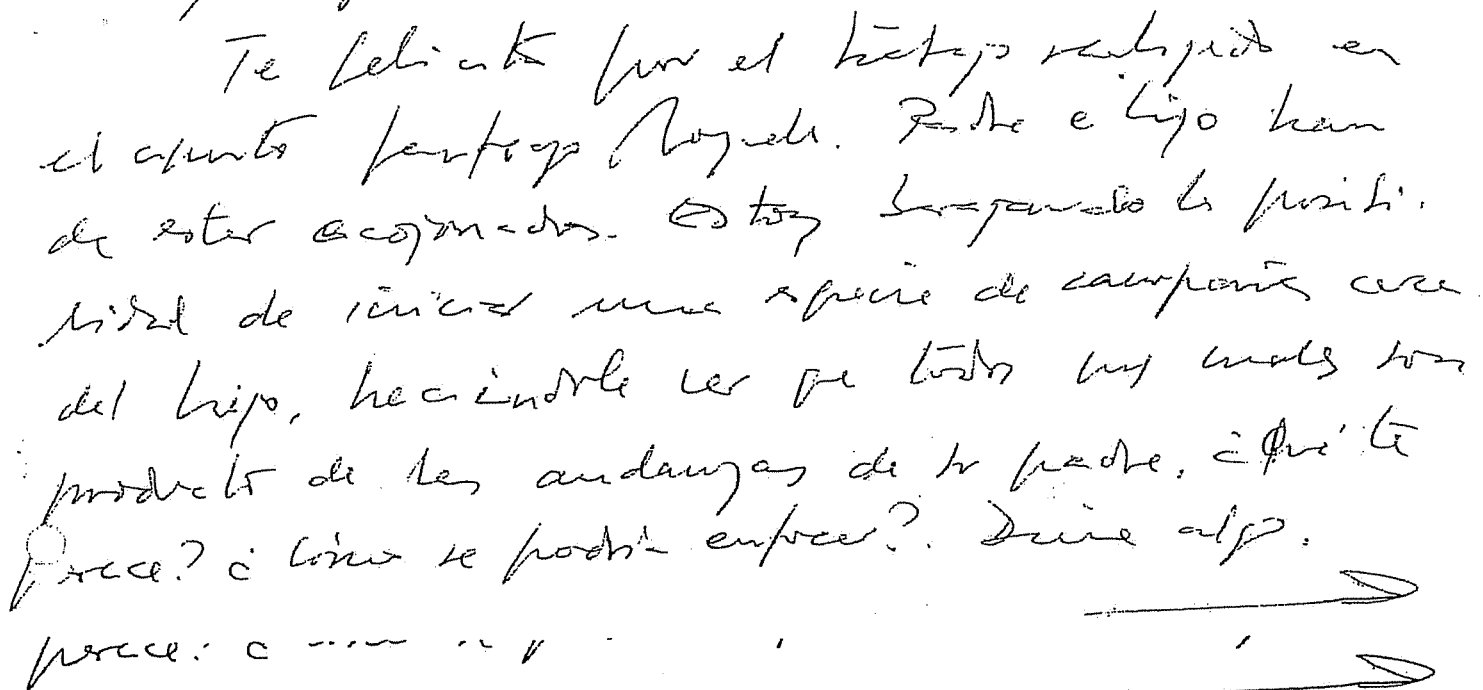 Te felicito por el trabajo realizado en
el asunto Santiago Moyuelo. Padre e hijo han
de estar acojonados. Estoy barajando la posibi-
lidad de iniciar una especie de campaña cerca
del hijo, haciéndole ver que todos sus males son
producto de las andanzas de su padre. ¿Qué te
parece? ¿Cómo se podría enfocar?. Dime algo.
parece: ¿